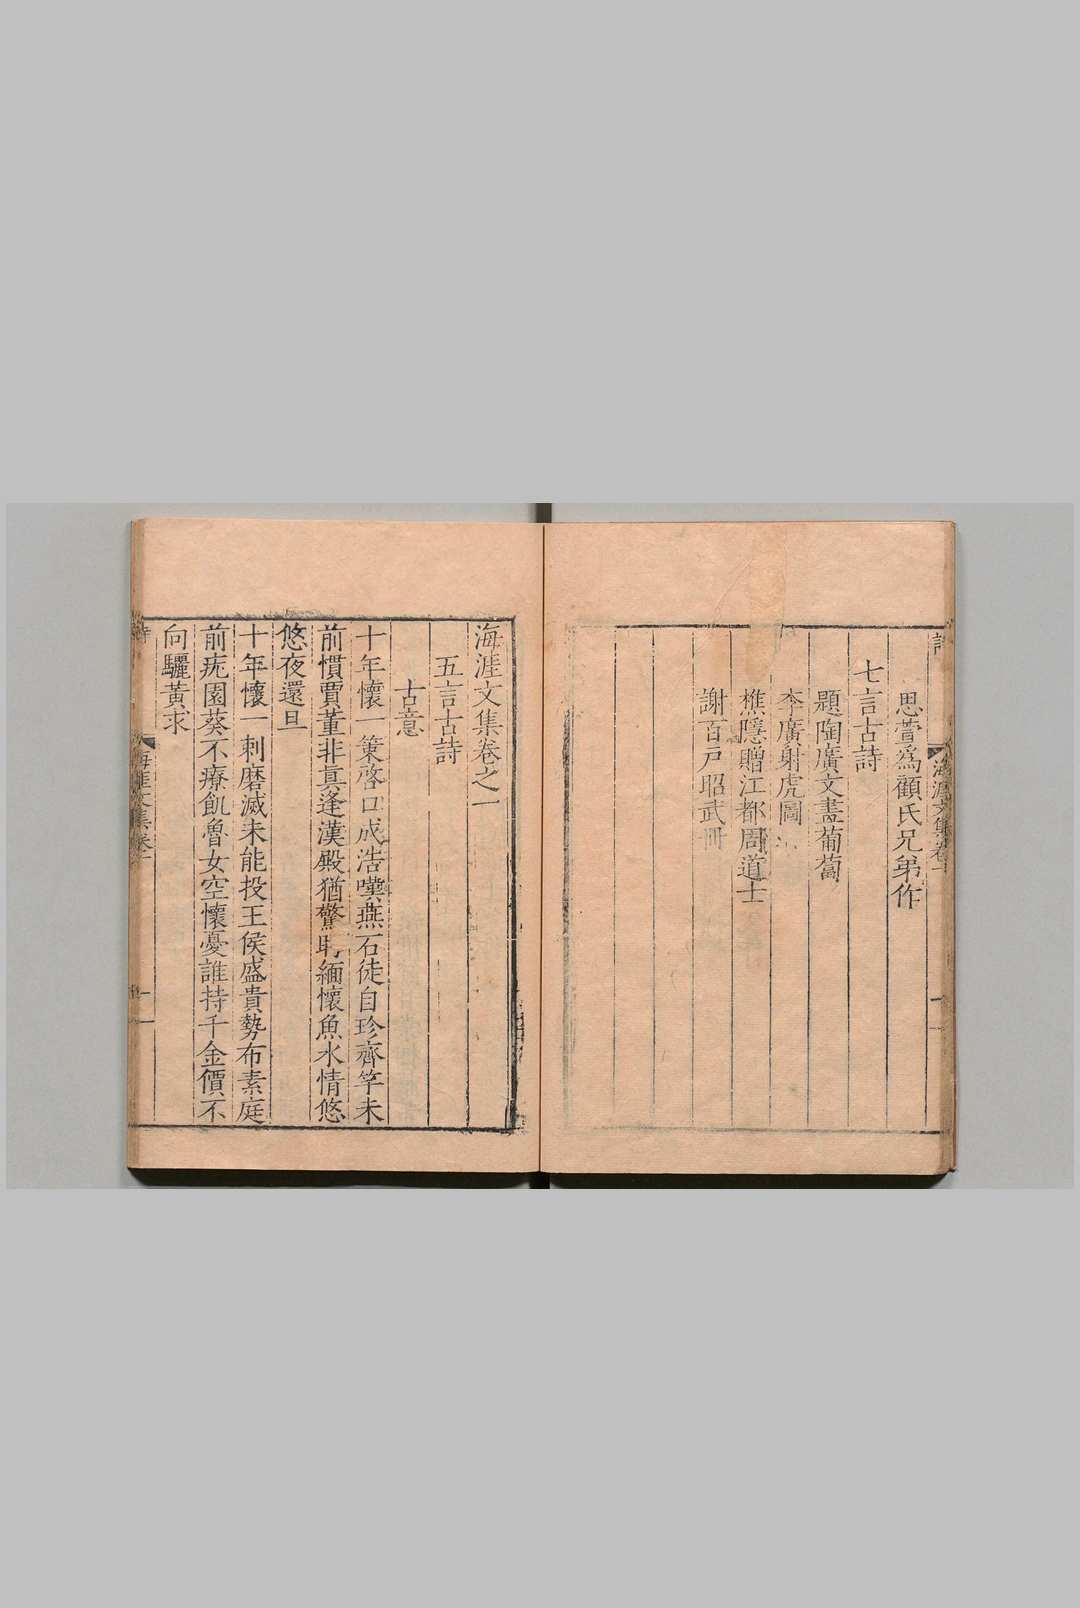 思萱爲顧氏兄弟作
七言古詩
題陶廣文畫葡萄
李廣射虎圖
樵隱贈江都周道士
謝百戸昭武冊
海涯文集卷之一
五言古詩
古意
十年懷一策啓口成浩嘆燕石徒自珍齊竽未
前慣賈董非眞逢漢殿猶驚緬懷魚水情悠
悠夜還旦
十年懷一刺磨滅未能投王侯盛貴勢布素庭
前荒園葵不療飢魯女空懷憂誰持千金價不
向驪黃求
海涯文集卷一